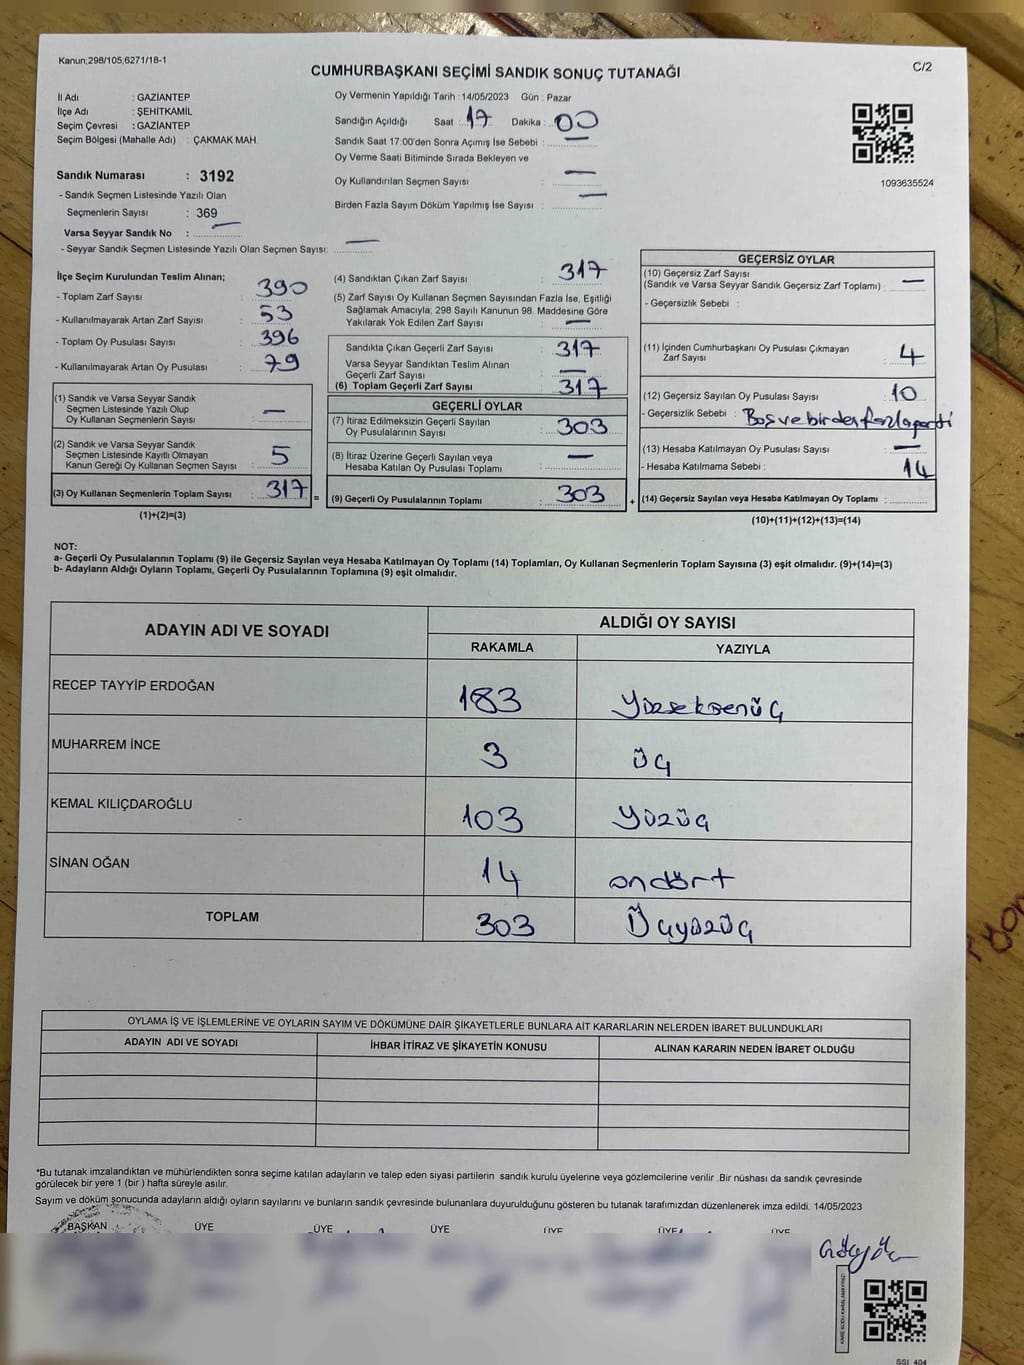 Kanun;298/105,6271/18-1
C/2
CUMHURBAŞKANI SEÇİMİ SANDIK SONUÇ TUTANAĞI
İl Adı : GAZİANTEP
İlçe Adı : ŞEHİTKAMİL
Seçim Çevresi : GAZİANTEP
Seçim Bölgesi (Mahalle Adı) : ÇAKMAK MAH.
Sandık Numarası : 3192
- Sandık Seçmen Listesinde Yazılı Olan
Seçmenlerin Sayısı : 369
Varsa Seyyar Sandık No : —
- Seyyar Sandık Seçmen Listesinde Yazılı Olan Seçmen Sayısı: —
Oy Vermenin Yapıldığı Tarih : 14/05/2023 Gün : Pazar
Sandığın Açıldığı Saat : 17 Dakika : 00
Sandık Saat 17:00'den Sonra Açımış İse Sebebi : —
Oy Verme Saati Bitiminde Sırada Bekleyen ve
Oy Kullandırılan Seçmen Sayısı : —
Birden Fazla Sayım Döküm Yapılmış İse Sayısı : —
1093635524
İlçe Seçim Kurulundan Teslim Alınan;
- Toplam Zarf Sayısı : 390
- Kullanılmayarak Artan Zarf Sayısı : 53
- Toplam Oy Pusulası Sayısı : 396
- Kullanılmayarak Artan Oy Pusulası : 79
(1) Sandık ve Varsa Seyyar Sandık
Seçmen Listesinde Yazılı Olup
Oy Kullanan Seçmenlerin Sayısı : —
(2) Sandık ve Varsa Seyyar Sandık
Seçmen Listesinde Kayıtlı Olmayan
Kanun Gereği Oy Kullanan Seçmen Sayısı : 5
(3) Oy Kullanan Seçmenlerin Toplam Sayısı : 317 =
(1)+(2)=(3)
(4) Sandıktan Çıkan Zarf Sayısı : 317
(5) Zarf Sayısı Oy Kullanan Seçmen Sayısından Fazla İse, Eşitliği
Sağlamak Amacıyla; 298 Sayılı Kanunun 98. Maddesine Göre
Yakılarak Yok Edilen Zarf Sayısı : —
Sandıkta Çıkan Geçerli Zarf Sayısı : 317
Varsa Seyyar Sandıktan Teslim Alınan
Geçerli Zarf Sayısı : —
(6) Toplam Geçerli Zarf Sayısı : 317
GEÇERLİ OYLAR
(7) İtiraz Edilmeksizin Geçerli Sayılan
Oy Pusulalarının Sayısı : 303
(8) İtiraz Üzerine Geçerli Sayılan veya
Hesaba Katılan Oy Pusulası Toplamı : —
(9) Geçerli Oy Pusulalarının Toplamı : 303 +
GEÇERSİZ OYLAR
(10) Geçersiz Zarf Sayısı
(Sandık ve Varsa Seyyar Sandık Geçersiz Zarf Toplamı) : —
- Geçersizlik Sebebi :
(11) İçinden Cumhurbaşkanı Oy Pusulası Çıkmayan
Zarf Sayısı : 4
(12) Geçersiz Sayılan Oy Pusulası Sayısı : 10
- Geçersizlik Sebebi : Boş ve birden fazla parti
(13) Hesaba Katılmayan Oy Pusulası Sayısı : —
- Hesaba Katılmama Sebebi : 14
(14) Geçersiz Sayılan veya Hesaba Katılmayan Oy Toplamı :
(10)+(11)+(12)+(13)=(14)
NOT:
a- Geçerli Oy Pusulalarının Toplamı (9) ile Geçersiz Sayılan veya Hesaba Katılmayan Oy Toplamı (14) Toplamları, Oy Kullanan Seçmenlerin Toplam Sayısına (3) eşit olmalıdır. (9)+(14)=(3)
b- Adayların Aldığı Oyların Toplamı, Geçerli Oy Pusulalarının Toplamına (9) eşit olmalıdır.
ADAYIN ADI VE SOYADI
ALDIĞI OY SAYISI
RAKAMLA YAZIYLA
RECEP TAYYİP ERDOĞAN 183 Yüzseksenüç
MUHARREM İNCE 3 üç
KEMAL KILIÇDAROĞLU 103 Yüzüç
SİNAN OĞAN 14 ondört
TOPLAM 303 Üçyüzüç
OYLAMA İŞ VE İŞLEMLERİNE VE OYLARIN SAYIM VE DÖKÜMÜNE DAİR ŞİKAYETLERLE BUNLARA AİT KARARLARIN NELERDEN İBARET BULUNDUKLARI
ADAYIN ADI VE SOYADI İHBAR İTİRAZ VE ŞİKAYETİN KONUSU ALINAN KARARIN NEDEN İBARET OLDUĞU
*Bu tutanak imzalandıktan ve mühürlendikten sonra seçime katılan adayların ve talep eden siyasi partilerin sandık kurulu üyelerine veya gözlemcilerine verilir .Bir nüshası da sandık çevresinde
görülecek bir yere 1 (bir ) hafta süreyle asılır.
Sayım ve döküm sonucunda adayların aldığı oyların sayılarını ve bunların sandık çevresinde bulunanlara duyurulduğunu gösteren bu tutanak tarafımızdan düzenlenerek imza edildi. 14/05/2023
BAŞKAN ÜYE ÜYE ÜYE ÜYE ÜYE ÜYE
SSI_404